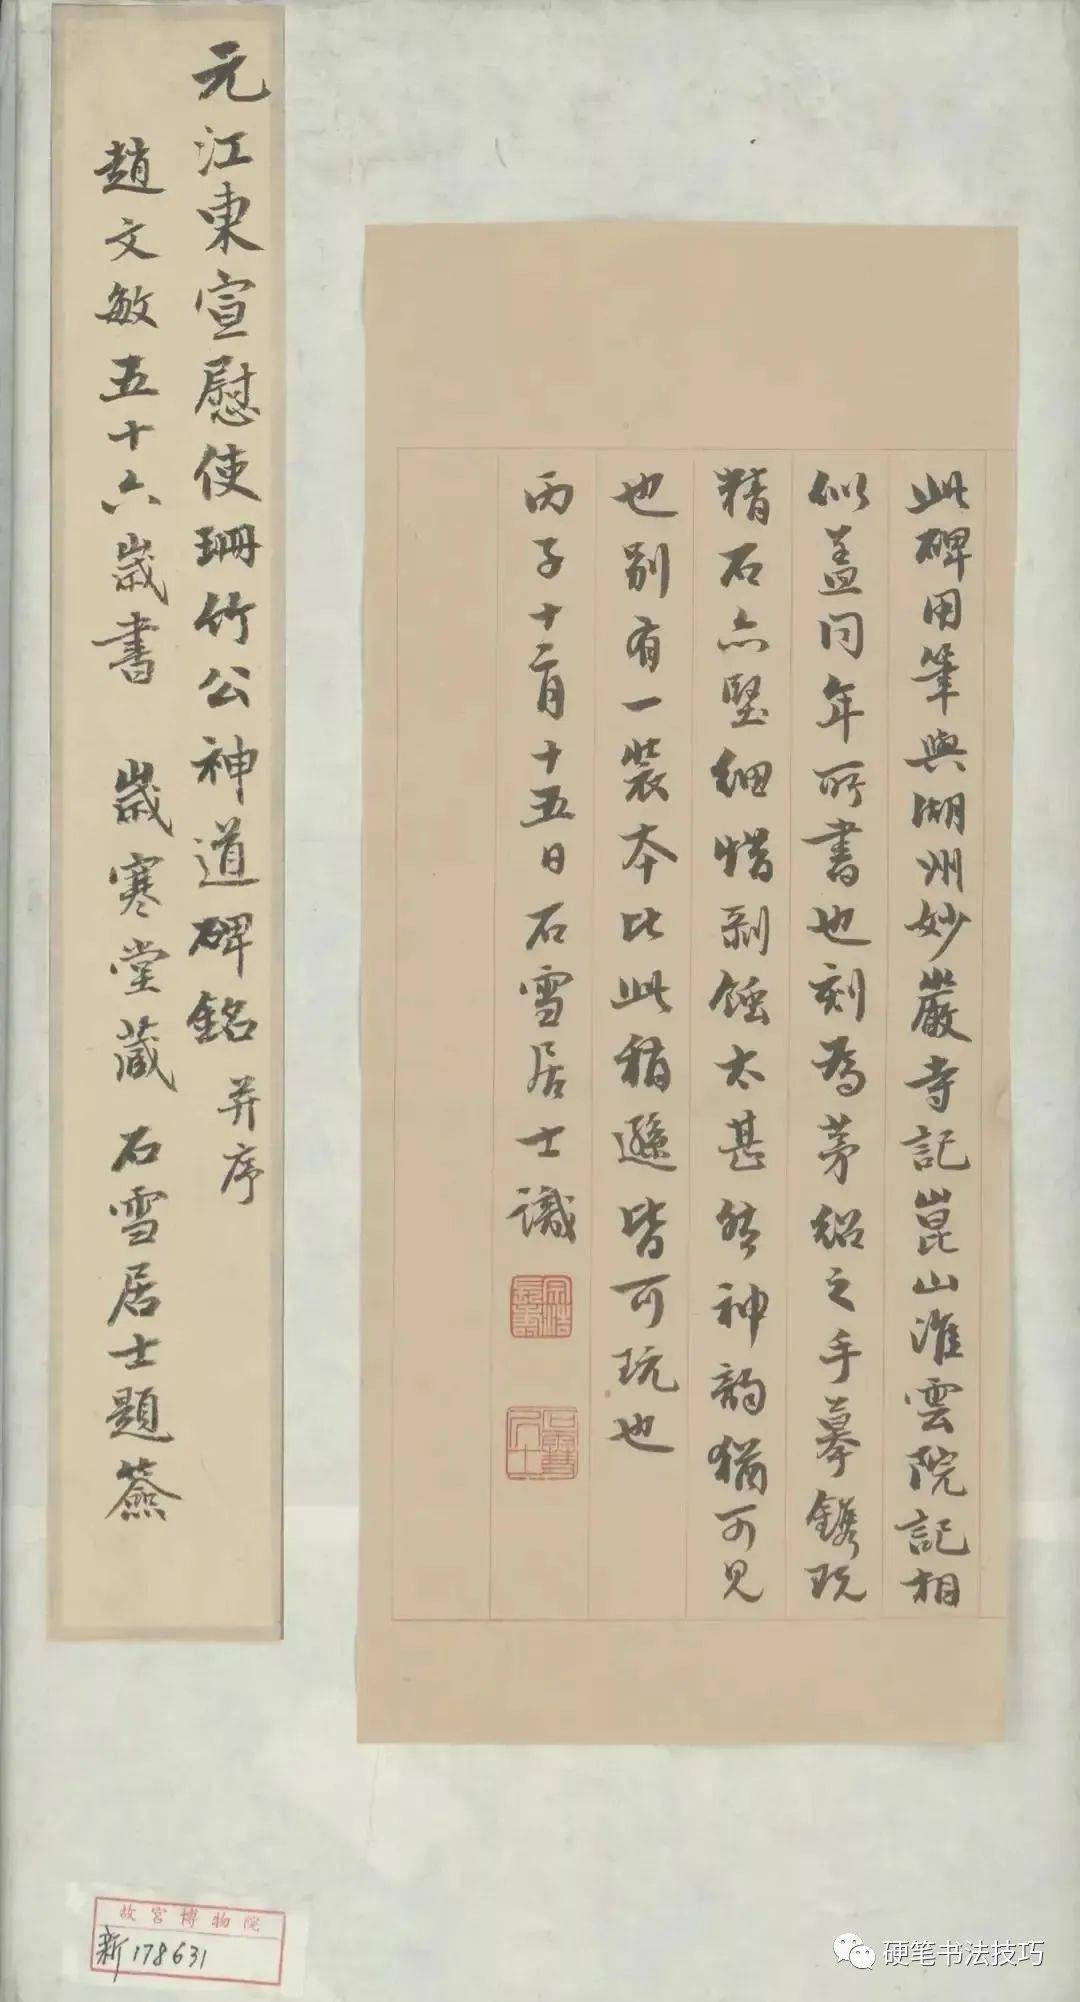 此碑用筆與湖州妙嚴寺記崑山淮雲院記相
似盖同年所書也刻為茅紹之手摹鐫既
精石亦堅細惜剥蝕太甚然神韵猶可見
也别有一裝本比此稍遜皆可玩也
丙子十二月十五日石雪居士識
元江東宣慰使珊竹公神道碑銘并序
趙文敏五十六歲書 歲寒堂藏 石雪居士題簽
故宮博物院
新178631
硬笔书法技巧